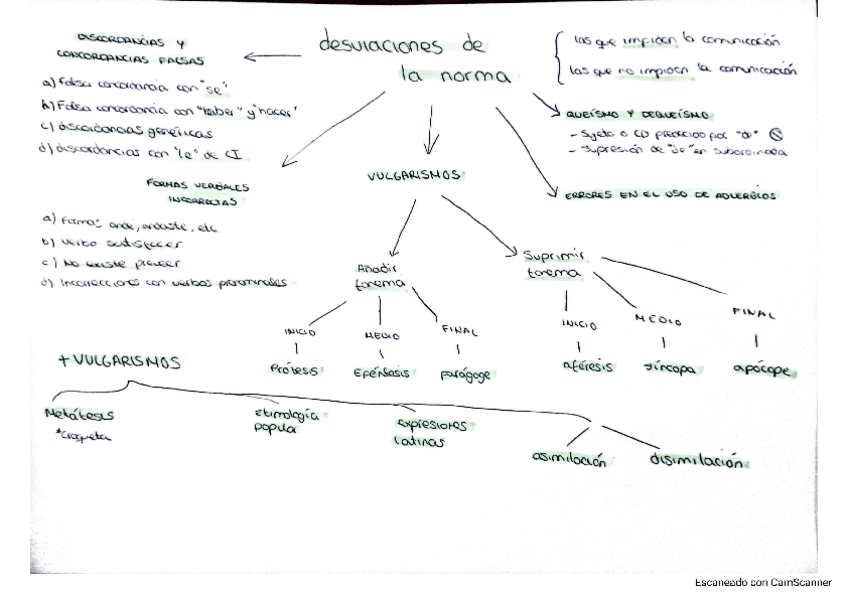 desviaciones de
la norma
las que impiden la comunicación
las que no impiden la comunicación
DISCORDANCIAS Y
CONCORDANCIAS FALSAS
a) Falsa concordancia con "se"
b) Falsa concordancia con "haber" y "hacer"
c) discordancias genéricas
d) discordancias con "le" de CI
QUEÍSMO Y DEQUEÍSMO
- Sujeto o CD precedido por "de"
- Supresión de "de" en subordinada
ERRORES EN EL USO DE ADVERBIOS
FORMAS VERBALES
INCORRECTAS
a) Formas andé, andaste, etc
b) Verbo satisfacer
c) No existe preveer
d) Incorrecciones con verbos pronominales
VULGARISMOS
Añadir
fonema
INICIO
Prótesis
MEDIO
Epéntesis
FINAL
parágoge
Suprimir
fonema
INICIO
aféresis
MEDIO
síncopa
FINAL
apócope
+ VULGARISMOS
Metátesis
*Croqueta
Etimología
popular
expresiones
latinas
asimilación
disimilación
Escaneado con CamScanner